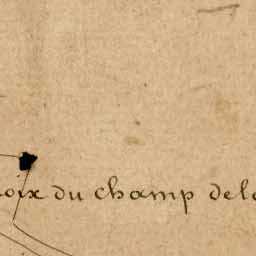 oix du champ dela